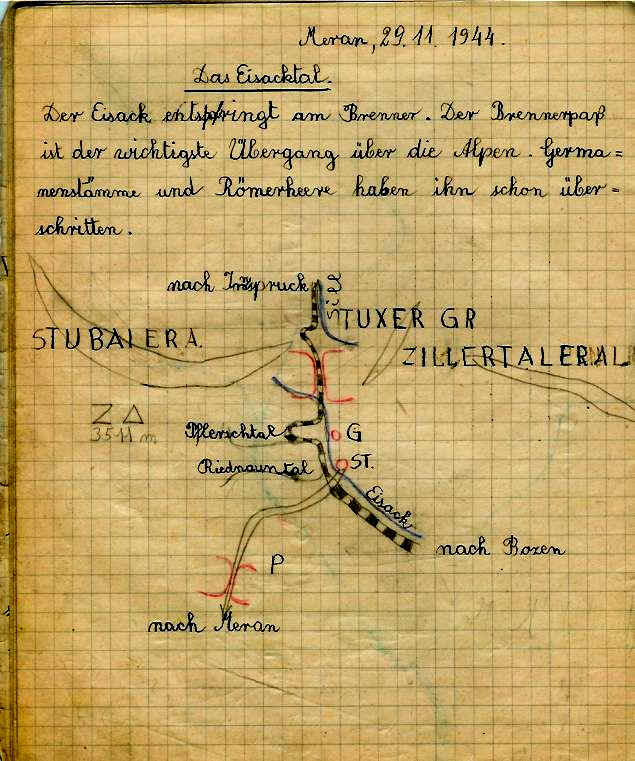 Meran, 29.11. 1944.
Das Eisacktal.
Der Eisack entspringt am Brenner. Der Brennerpaß
ist der wichtigste Übergang über die Alpen. Germa=
nenstämme und Römerheere haben ihn schon über=
schritten.
nach Innspruck
SILL
STUBAIER A.
TUXER GR
ZILLERTALER AL
Z Δ
3511 m
Pflerschtal
G
Riednauntal
ST.
Eisack
nach Bozen
P
nach Meran